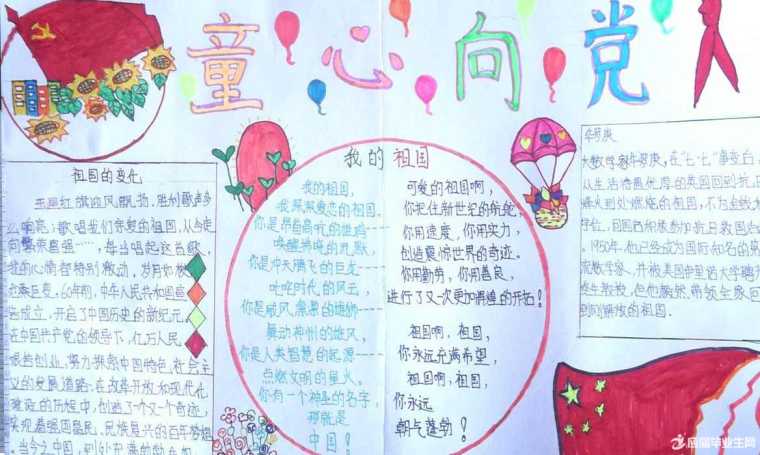 童心向党
祖国的变化
五星红旗迎风飘扬,胜利歌声多
么响亮;歌唱我们亲爱的祖国,从今走
向繁荣富强……,每当唱起这首歌,
我的心情都特别激动,
60年前,中华人民共和国宣
告成立,开启了中国历史的新纪元。
在中国共产党的领导下,亿万人民
艰苦创业,努力探索中国特色社会主
义的发展道路;在改革开放和现代化
建设的历程中,创造了一个又一个奇迹,
实现着强国富民,民族复兴的百年梦想
当今之中国,到处充满
我的祖国
我的祖国,
我深深爱恋的祖国。
你是昂首高吭的雄鸡——
唤醒拂晓的沉默,
你是冲天腾飞的巨龙——
叱咤时代的风云,
你是威风凛凛的雄狮——
舞动神州的雄风,
你是人类智慧的起源——
点燃文明的星火。
你有一个神圣的名字,
那就是
中国!
可爱的祖国啊,
你把住新世纪的航舵,
你用速度,你用实力,
创造震惊世界的奇迹。
你用勤劳,你用善良,
进行了又一次更加辉煌的开拓!
祖国啊,祖国,
你永远充满希望,
祖国啊,祖国,
你永远
朝气蓬勃!
华罗庚
大数学家华罗庚,在“七·七”事变白
从生活待遇优厚的英国回到抗日
烽火到处燃烧的祖国,不为金钱
学位,回国后积极参加抗日救国
。1950年,他已经成为国际知名的第
流数学家,并被美国伊里诺大学聘
终生教授,但他毅然带领全家回
到刚解放的祖国.
应届毕业生网